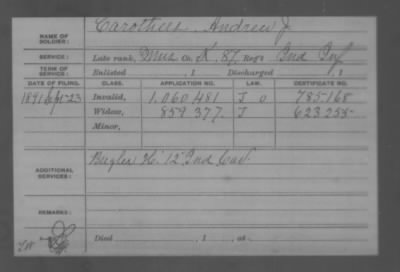 NAME OF SOLDIER: Carothers, Andrew J
SERVICE: Late rank, Mus Co. K, 87 Reg't Ind Inf
TERM OF SERVICE: Enlisted , 1 Discharged , 1
DATE OF FILING. CLASS. APPLICATION NO. LAW. CERTIFICATE NO.
1891 Invalid, 1.060.481 J O 785.168
Widow, 859.377 J 623.255
Minor,
ADDITIONAL SERVICES: Bugler H. 12 Ind Cav.
REMARKS:
Died , 1 , at